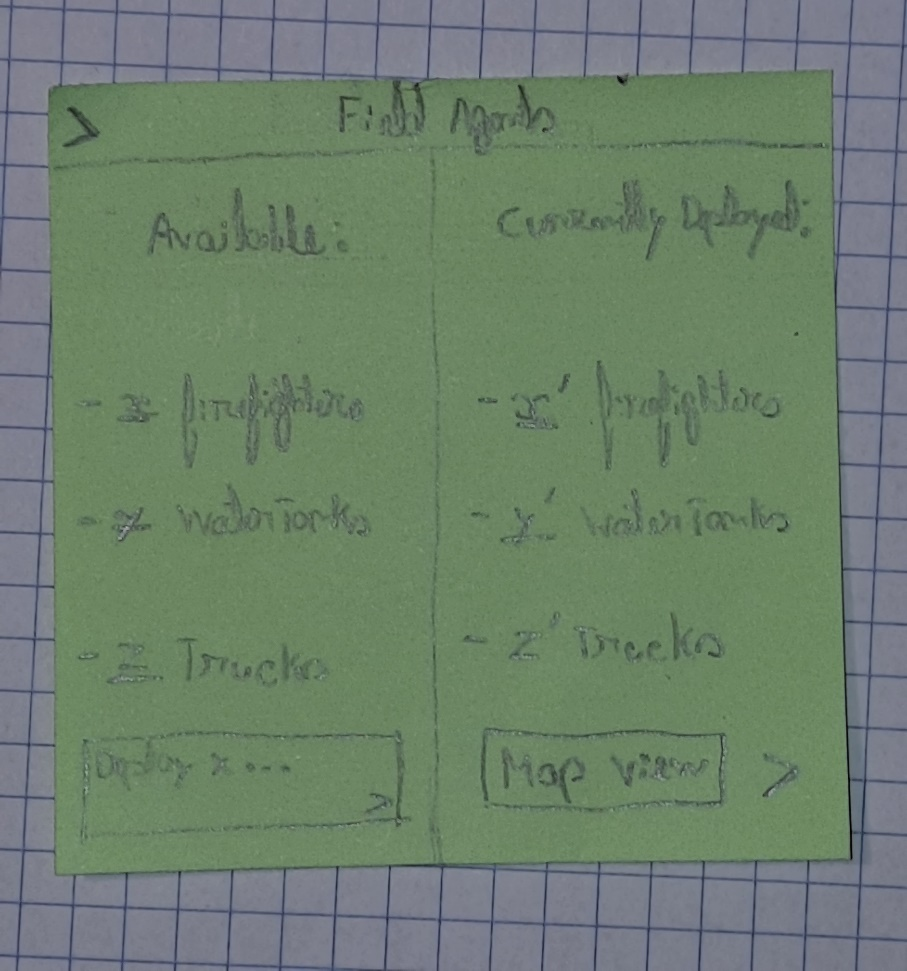 > Field Agents
Available:
- x firefighters
- y WaterTanks
- z Trucks
Deploy x ...
>
Currently Deployed:
- x' firefighters
- y' WaterTanks
- z' Trucks
Map view >